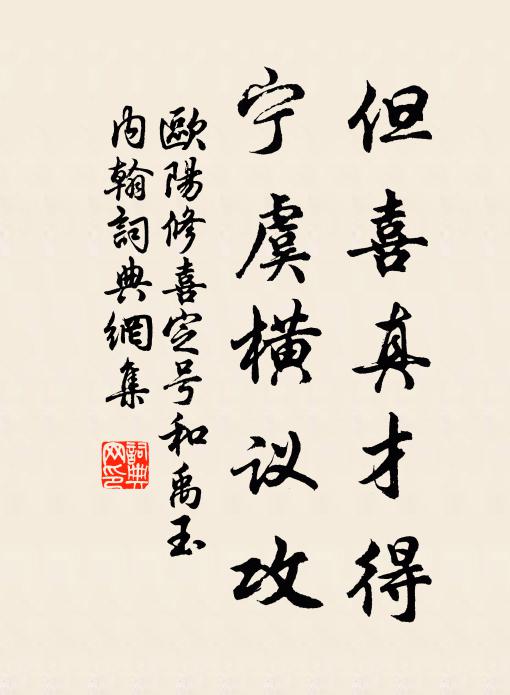 但喜真才得
宁虞横议攻
歐陽修喜定号和禹玉
内翰詞典網集
詞典网印